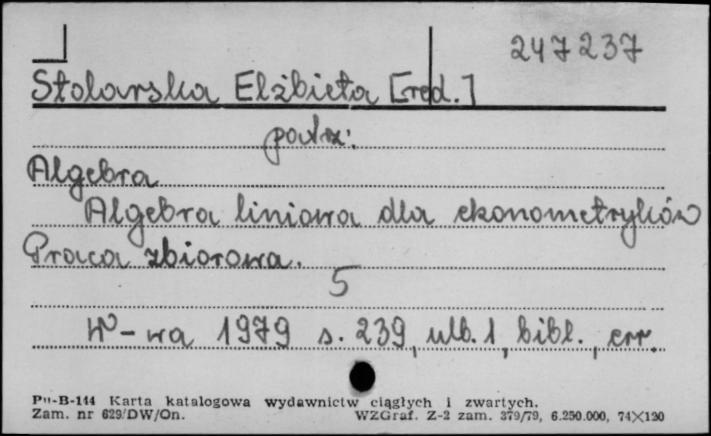 247237
Stolarska Elżbieta [red.]
patrz:
Algebra
Algebra liniowa dla ekonometryków
Praca zbiorowa.
5
W-wa 1979 s. 239, ulb. 1, bibl., err.
Pu-B-144 Karta katalogowa wydawnictw ciągłych i zwartych.
Zam. nr 629/DW/On. WZGraf. Z-2 zam. 379/79, 6.250.000, 74×120